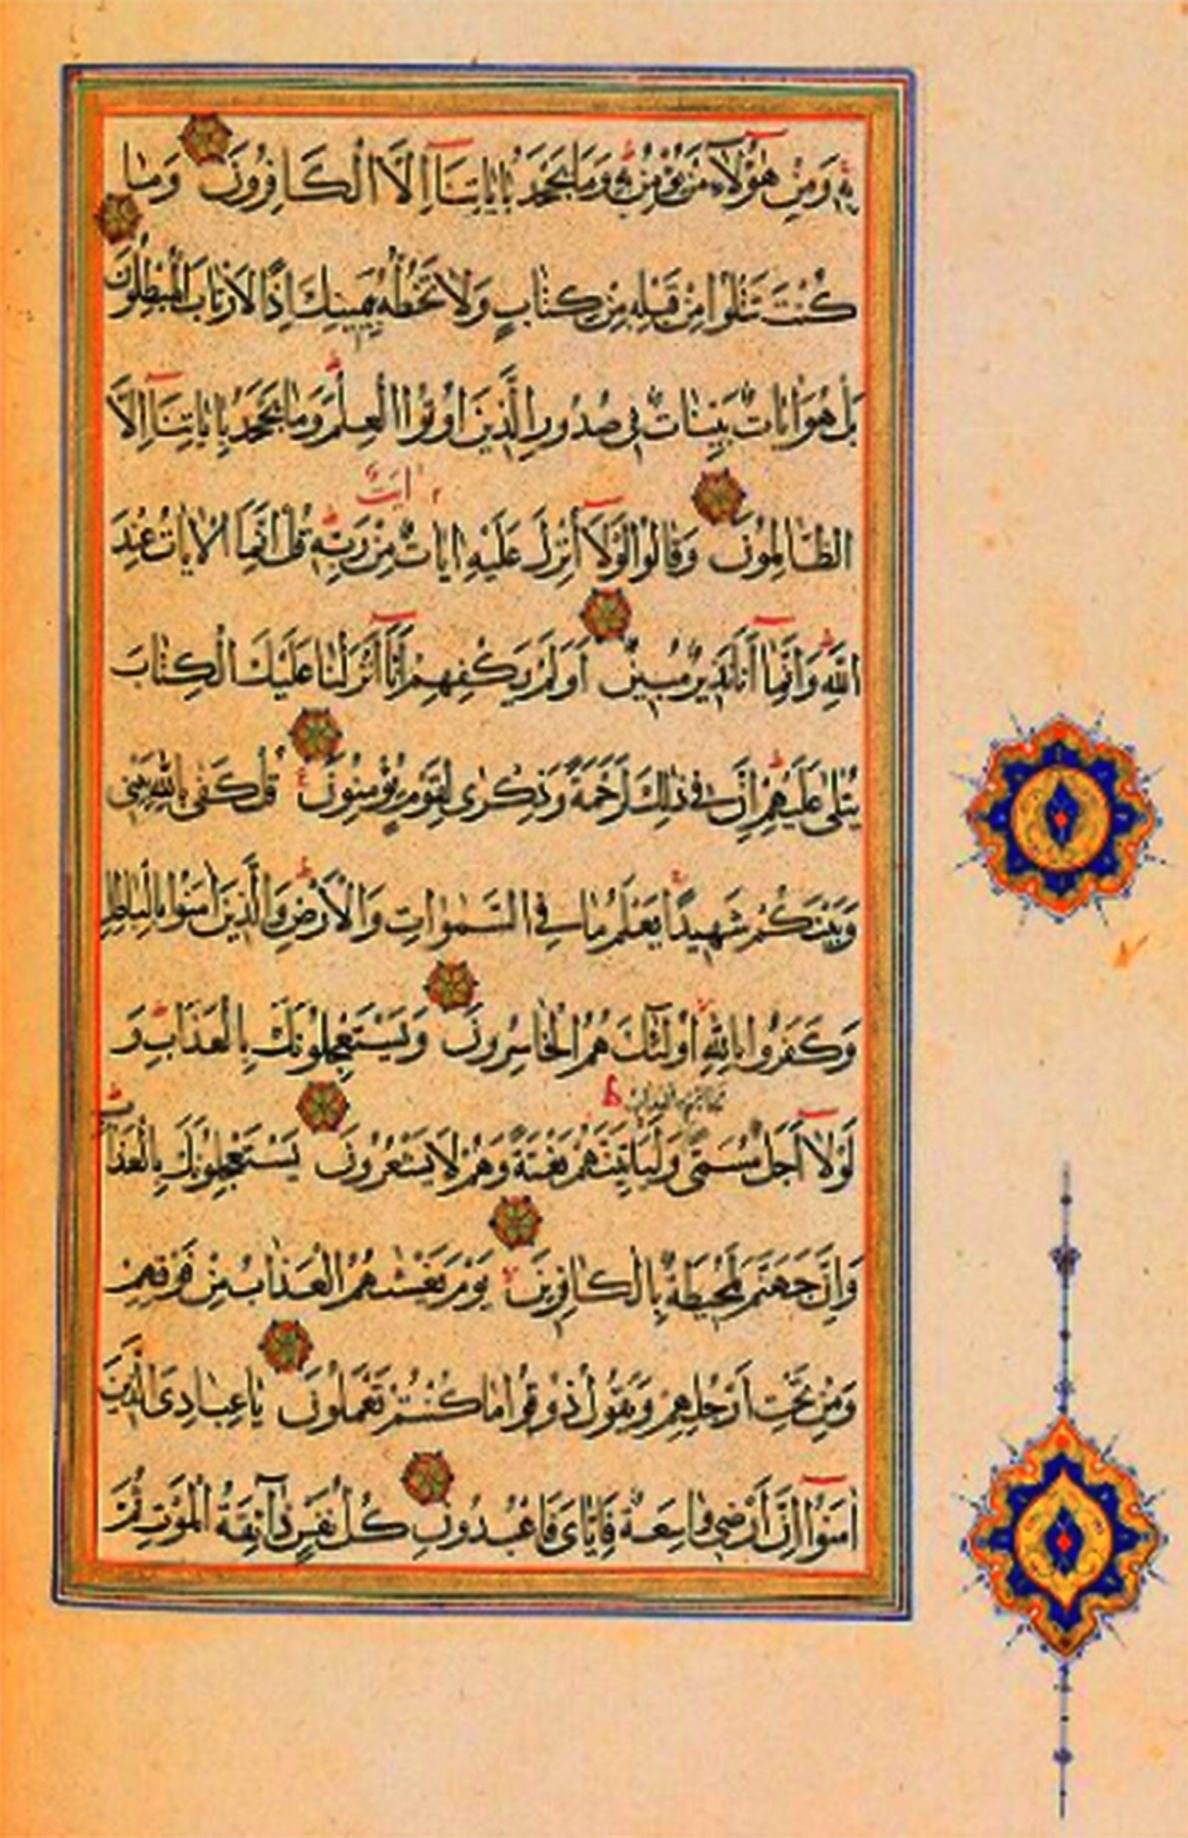 بِهِ وَمِنْ هٰؤُلَآءِ مَنْ يُؤْمِنُ بِهِ وَمَا يَجْحَدُ بِاٰيَاتِنَآ اِلَّا الْكَافِرُونَ وَمَا
كُنْتَ تَتْلُوا مِنْ قَبْلِهِ مِنْ كِتَابٍ وَلَا تَخُطُّهُ بِيَمِينِكَ اِذًا لَارْتَابَ الْمُبْطِلُونَ
بَلْ هُوَ اٰيَاتٌ بَيِّنَاتٌ فِى صُدُورِ الَّذِينَ اُوتُوا الْعِلْمَ وَمَا يَجْحَدُ بِاٰيَاتِنَآ اِلَّا
ايت
الظَّالِمُونَ وَقَالُوا لَوْلَآ اُنْزِلَ عَلَيْهِ اٰيَاتٌ مِنْ رَبِّهِ قُلْ اِنَّمَا الْاٰيَاتُ عِنْدَ
اللّٰهِ وَاِنَّمَآ اَنَا نَذِيرٌ مُبِينٌ اَوَلَمْ يَكْفِهِمْ اَنَّآ اَنْزَلْنَا عَلَيْكَ الْكِتَابَ
يُتْلٰى عَلَيْهِمْ اِنَّ فِى ذٰلِكَ لَرَحْمَةً وَذِكْرٰى لِقَوْمٍ يُؤْمِنُونَ قُلْ كَفٰى بِاللّٰهِ بَيْنِى
وَبَيْنَكُمْ شَهِيدًا يَعْلَمُ مَا فِى السَّمٰوَاتِ وَالْاَرْضِ وَالَّذِينَ اٰمَنُوا بِالْبَاطِلِ
وَكَفَرُوا بِاللّٰهِ اُولٰٓئِكَ هُمُ الْخَاسِرُونَ وَيَسْتَعْجِلُونَكَ بِالْعَذَابِ وَ
لَوْلَآ اَجَلٌ مُسَمًّى لَجَآءَهُمُ الْعَذَابُ وَلَيَاْتِيَنَّهُمْ بَغْتَةً وَهُمْ لَا يَشْعُرُونَ يَسْتَعْجِلُونَكَ بِالْعَذَابِ
وَاِنَّ جَهَنَّمَ لَمُحِيطَةٌ بِالْكَافِرِينَ يَوْمَ يَغْشٰيهُمُ الْعَذَابُ مِنْ فَوْقِهِمْ
وَمِنْ تَحْتِ اَرْجُلِهِمْ وَيَقُولُ ذُوقُوا مَا كُنْتُمْ تَعْمَلُونَ يَا عِبَادِىَ الَّذِينَ
اٰمَنُوا اِنَّ اَرْضِى وَاسِعَةٌ فَاِيَّاىَ فَاعْبُدُونِ كُلُّ نَفْسٍ ذَآئِقَةُ الْمَوْتِ ثُمَّ